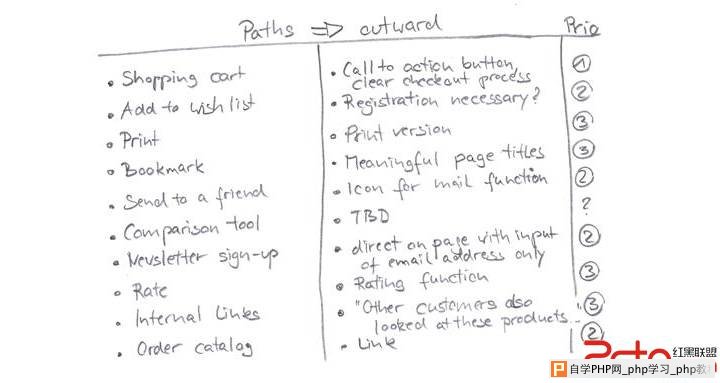 Paths ⇒ outward Prio
• Shopping cart • Call to action button, clear checkout process 1
• Add to wish list • Registration necessary? 2
• Print • Print version 3
• Bookmark • Meaningful page titles 3
• Send to a friend • Icon for mail function 2
• Comparison tool • TBD ?
• Newsletter sign-up • direct on page with input of email address only 2
• Rate • Rating function 3
• Internal Links • "Other customers also looked at these products... 3
• Order catalog • Link 2
红黑联盟
P 自学PHP网_php学习_php教